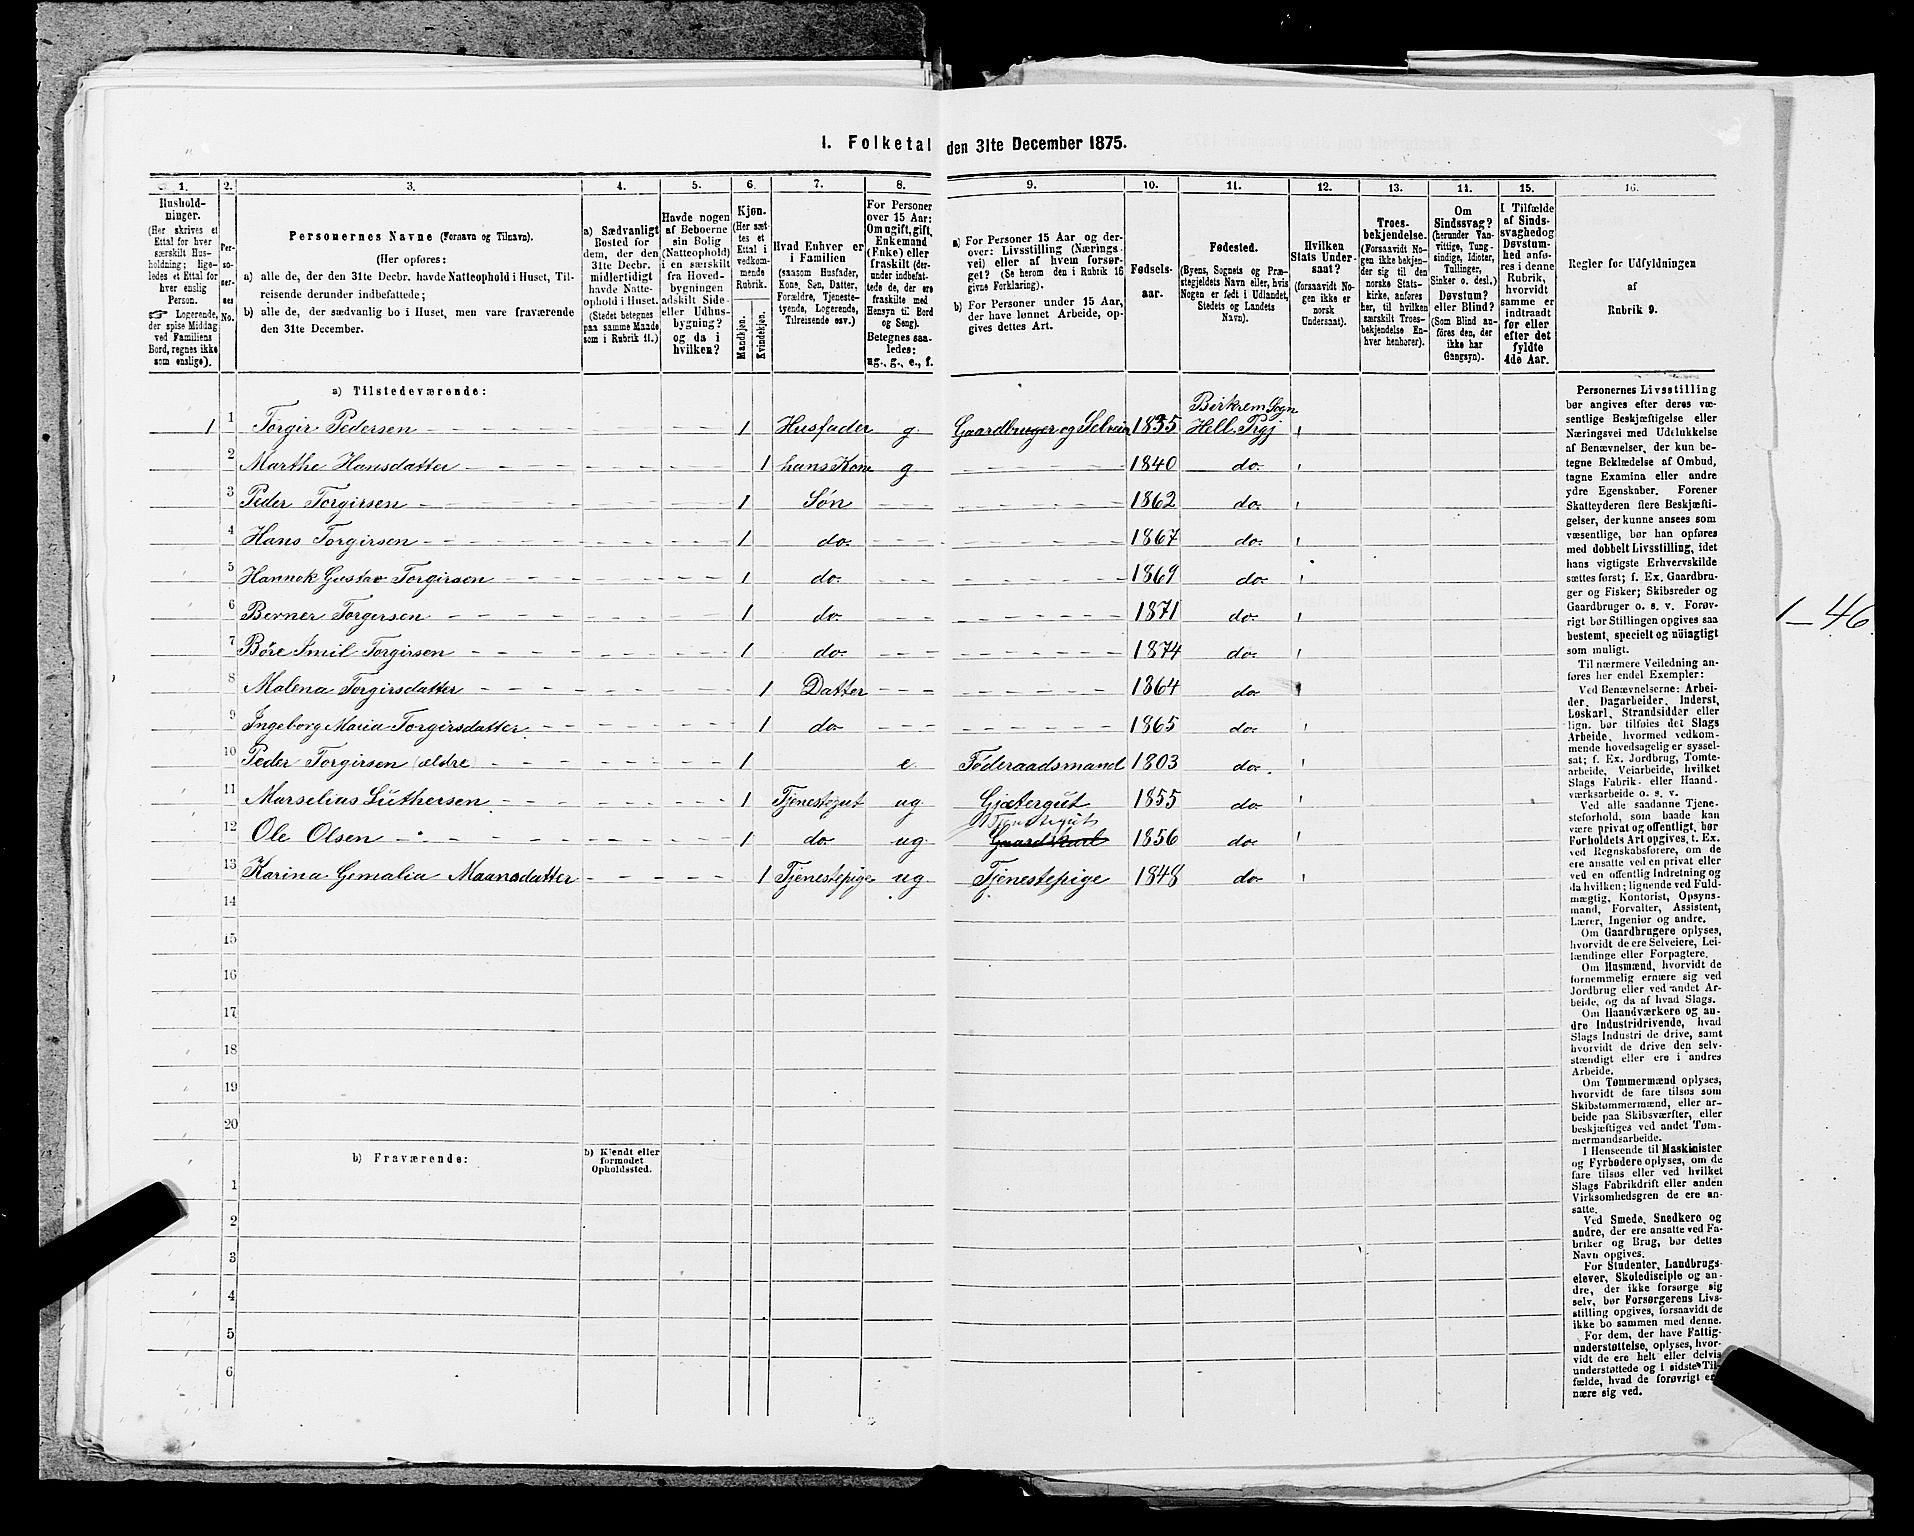 1. Folketal den 31te December 1875.
1. 2. 3. 4. 5. 6. 7. 8. 9. 10. 11. 12. 13. 14. 15. 16.
Hushold-
ninger.
(Her skrives et
Ettal for hver
særskilt Hus-
holdning; lige-
ledes et Ettal for
hver enslig
Person.
☞ Logerende,
der spise Middag
ved Familiens
Bord, regnes ikke
som enslige).
Per-
so-
ner-
nes
No.
Personernes Navne (Fornavn og Tilnavn).
(Her opføres:
a) alle de, der den 31te Decbr. havde Natteophold i Huset, Til-
reisende derunder indbefattede;
b) alle de, der sædvanlig bo i Huset, men vare fraværende
den 31te December.
a) Sædvanligt
Bosted for
dem, der den
31te Decbr.
midlertidigt
havde Natte-
ophold i Huset.
(Stedet betegnes
paa samme Maade
som i Rubrik 11.)
Havde nogen
af Beboerne
sin Bolig
(Natteophold)
i en særskilt
fra Hoved-
bygningen
adskilt Side-
eller Udhus-
bygning?
og da i
hvilken?
Kjøn.
(Her sæt-
tes et
Ettal i
vedkom-
mende
Rubrik.
Mandkjøn.
Kvindekjøn.
Hvad Enhver er
i Familien
(saasom Husfader,
Kone, Søn, Datter,
Forældre, Tjeneste-
tyende, Logerende,
Tilreisende osv.)
For Personer
over 15 Aar:
Om ugift, gift,
Enkemand
(Enke) eller
fraskilt (der-
under indbefat-
tede de, der ere
fraskilte med
Hensyn til Bord
og Seng).
Betegnes saa-
ledes:
ug., g., e., f.
a) For Personer 15 Aar og der-
over: Livsstilling (Nærings-
vei) eller af hvem forsør-
get? (Se herom den i Rubrik 16
givne Forklaring).
b) For Personer under 15 Aar,
der have lønnet Arbeide, op-
gives dettes Art.
Fødsels-
aar.
Fødested.
(Byens, Sognets og Præ-
stegjeldets Navn eller, hvis
Nogen er født i Udlandet,
Stedets og Landets
Navn).
Hvilken
Stats Under-
saat?
(forsaavidt No-
gen ikke er
norsk
Undersaat).
Troes-
bekjendelse.
(Forsaavidt No-
gen ikke bekjen-
der sig til den
norske Stats-
kirke, anføres
her, til hvilken
særskilt Troes-
bekjendelse En-
hver henhører).
Om
Sindssvag?
(herunder Van-
vittige, Tung-
sindige, Idioter,
Tullinger,
Sinker o. desl.)
Døvstum?
eller Blind?
(Som Blind an-
føres den, der
ikke har
Gangsyn).
I Tilfælde
af Sinds-
svaghed og
Døvstum-
hed anfø-
res i denne
Rubrik,
hvorvidt
samme er
indtraadt
før eller
efter det
fyldte
4de Aar.
Regler for Udfyldningen
af
Rubrik 9.
a) Tilstedeværende:
Birkrem Sogn
1 1 Torgir Pedersen 1 Husfader g Gaardbruger og Selveier 1835 Hell. Prgj
2 Marthe Hansdatter 1 hans Kone g 1840 do
3 Peder Torgirsen 1 Søn 1862 do
4 Hans Torgirsen 1 do 1867 do
5 Hannok Gustav Torgirsen 1 do 1869 do
6 Berner Torgersen 1 do 1871 do
7 Børe Emil Torgirsen 1 do 1874 do
8 Malena Torgirsdatter 1 Datter 1864 do
9 Ingeborg Maria Torgirsdatter 1 do 1865 do
10 Peder Torgirsen (ældre) 1 e Føderaadsmand 1803 do
11 Marselius Luthersen 1 Tjenestegut ug Gjætergut 1855 do
Tjenestegut
12 Ole Olsen 1 do ug Gaardskarl 1856 do
13 Karina Gemalia Maansdatter 1 Tjenestepige ug Tjenestepige 1848 do
14
15
16
17
18
19
20
b) Fraværende:
b) Kjendt eller
formodet
Opholdssted.
1
2
3
4
5
6
Personernes Livsstilling
bør angives efter deres væ-
sentlige Beskjæftigelse eller
Næringsvei med Udelukkelse
af Benævnelser, der kun be-
tegne Beklædelse af Ombud,
tagne Examina eller andre
ydre Egenskaber. Forener
Skatteyderen flere Beskjæfti-
gelser, der kunne ansees som
væsentlige, bør han opføres
med dobbelt Livsstilling, idet
hans vigtigste Erhvervskilde
sættes først; f. Ex. Gaardbru-
ger og Fisker; Skibsreder og
Gaardbruger o. s. v. Forøv-
rigt bør Stillingen opgives saa
bestemt, specielt og nöiagtigt
som muligt.
Til nærmere Veiledning an-
føres her endel Exempler:
Ved Benævnelserne: Arbei-
der, Dagarbeider, Inderst,
Løskarl, Strandsidder eller
lign. bør tilføies det Slags
Arbeide, hvormed vedkom-
mende hovedsagelig er syssel-
sat; f. Ex. Jordbrug, Tomte-
arbeide, Veiarbeide, hvilket
Slags Fabrik- eller Haand-
værksarbeide o. s. v.
Ved alle saadanne Tjene-
steforhold, som baade kan
være privat og offentligt, bør
Forholdets Art opgives, t. Ex.
ved Regnskabsførere, om de
ere ansatte ved en privat eller
ved en offentlig Indretning og
da hvilken; lignende ved Fuld-
mægtig, Kontorist, Opsyns-
mand, Forvalter, Assistent,
Lærer, Ingeniør og andre.
Om Gaardbrugere oplyses,
hvorvidt de ere Selveiere, Lei-
lændinge eller Forpagtere.
Om Husmænd, hvorvidt de
fornemmelig ernære sig ved
Jordbrug eller ved andet Ar-
beide, og da af hvad Slags.
Om Haandværkere og an-
dre Industridrivende, hvad
Slags Industri de drive, samt
hvorvidt de drive den selv-
stændigt eller ere i andres
Arbeide.
Om Tømmermænd oplyses,
hvorvidt de fare tilsøs som
Skibstømmermænd, eller ar-
beide paa Skibsværfter, eller
beskjæftiges ved andet Tøm-
mermandsarbeide.
I Henseende til Maskinister
og Fyrbødere oplyses, om de
fare tilsøs eller ved hvilket
Slags Fabrikdrift eller anden
Virksomhedsgren de ere an-
satte.
Ved Smede, Snedkere og
andre, der ere ansatte ved Fa-
briker og Brug, bør dettes
Navn opgives.
For Studenter, Landbrugs-
elever, Skoledisciple og an-
dre, der ikke forsørge sig
selv, bør Forsørgerens Livs-
stilling opgives, forsaavidt de
ikke bo sammen med denne.
For dem, der have Fattig-
understøttelse, oplyses, hvor-
vidt de ere helt eller delvis
understøttede og i sidste Til-
fælde, hvad de forøvrigt er-
nære sig ved.
1-46.